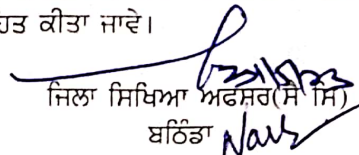 ਹਤ ਕੀਤਾ ਜਾਵੇ।
ਜਿਲਾ ਸਿਖਿਆ ਅਫਸਰ(ਸੈ ਸਿ)
ਬਠਿੰਡਾ